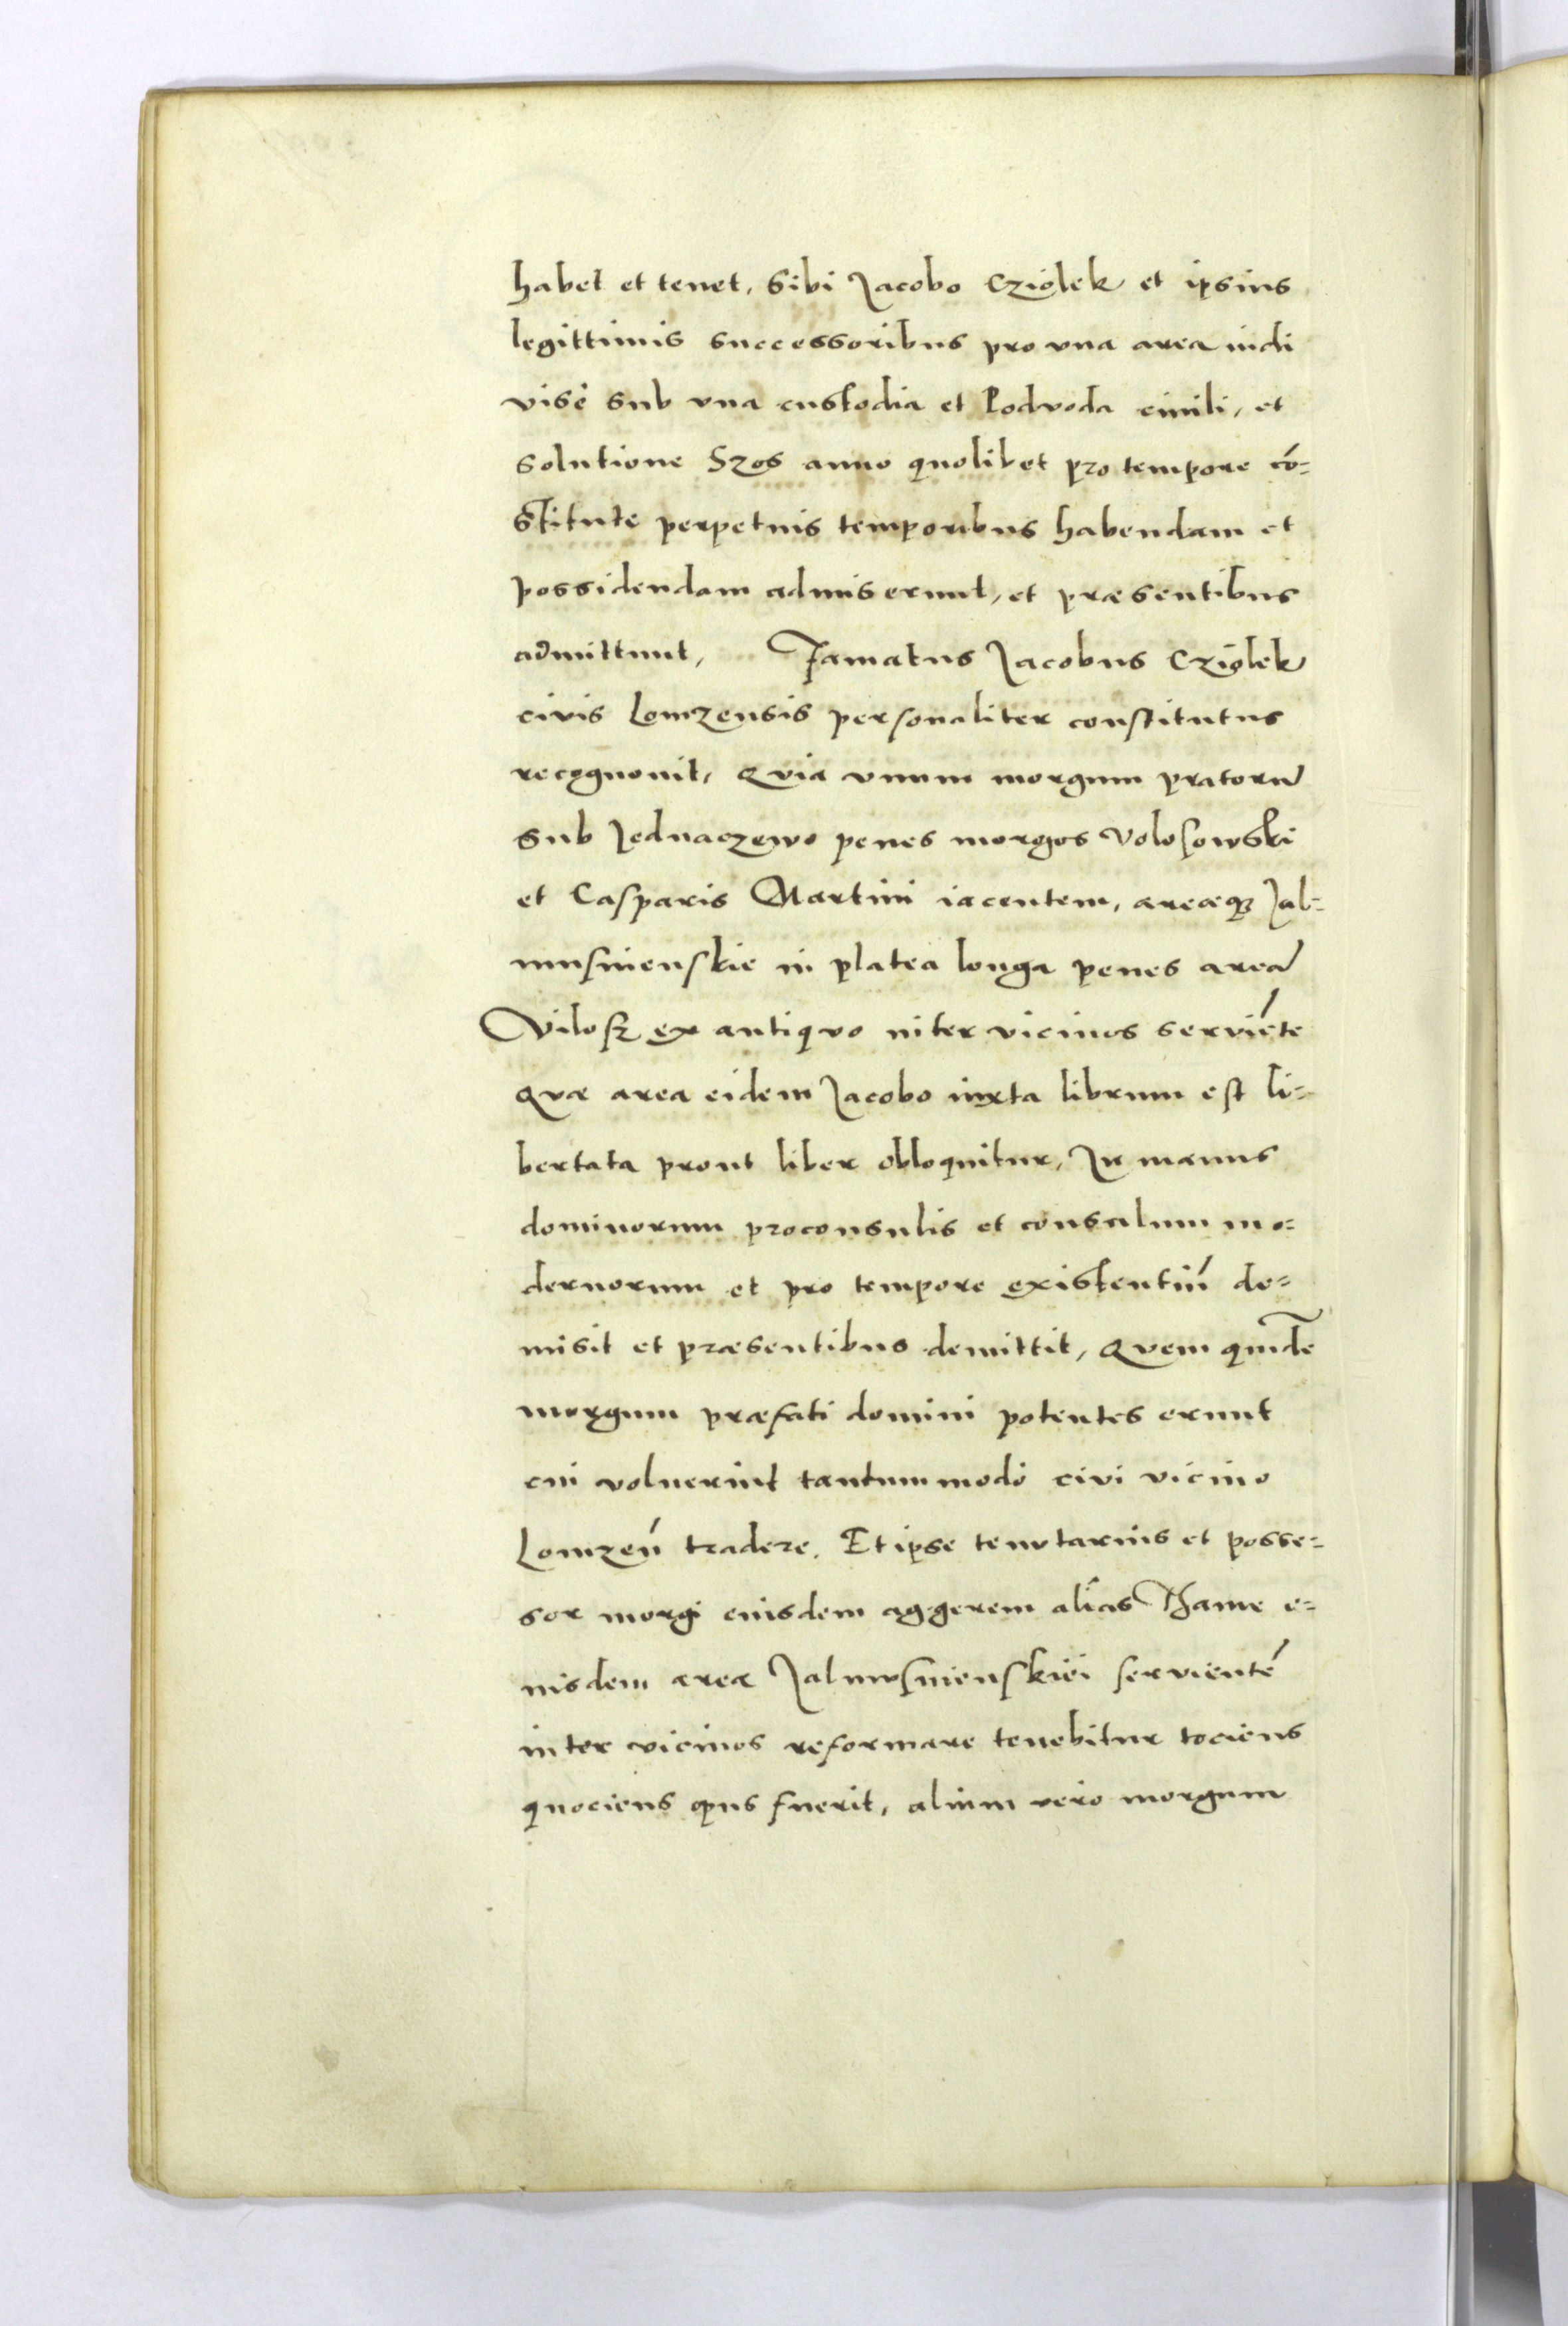 habet et tenet, Sibi Jacobo Cziolek et ipsius
legittimis successoribus pro vna area indi
visè sub vna custodia et Podvoda ciuili, et
solutione Szos anno quolibet pro tempore có-
stitute perpetuis temporibus habendam et
possidendam admiserunt, et præsentibus
admittunt, Famatus Jacobus Cziolek
civis Lomzensis personaliter constitutus
recognouit, Qvia vnum morgum pratorũ
sub Jednaczewo penes morgos Volosowski
et Casparis Martini iacentem, areæqȝ Jal-
musinenskie in platea longa penes areã
Vilosz ex antiqvo inter vicinos serviẽte
Qvæ area eidem Jacobo iuxta librum est li-
bertata prout liber obloquitur, In manus
dominorum proconsulis et consulum mo-
dernorum et pro tempore existentiũ de-
misit et præsentibus demittit, Qvem quidẽ
morgum præfati domini potentes erunt
cui voluerint tantummodo civi vicino
Lomzeń tradere. Et ipse tenutarius et posse-
sor morgi eiusdem aggerem alias Thame e-
iusdem areæ Jalmusinenskiei servientẽ
inter vicinos reformare tenebitur tociens
quociens opus fuerit, alium vero morgum